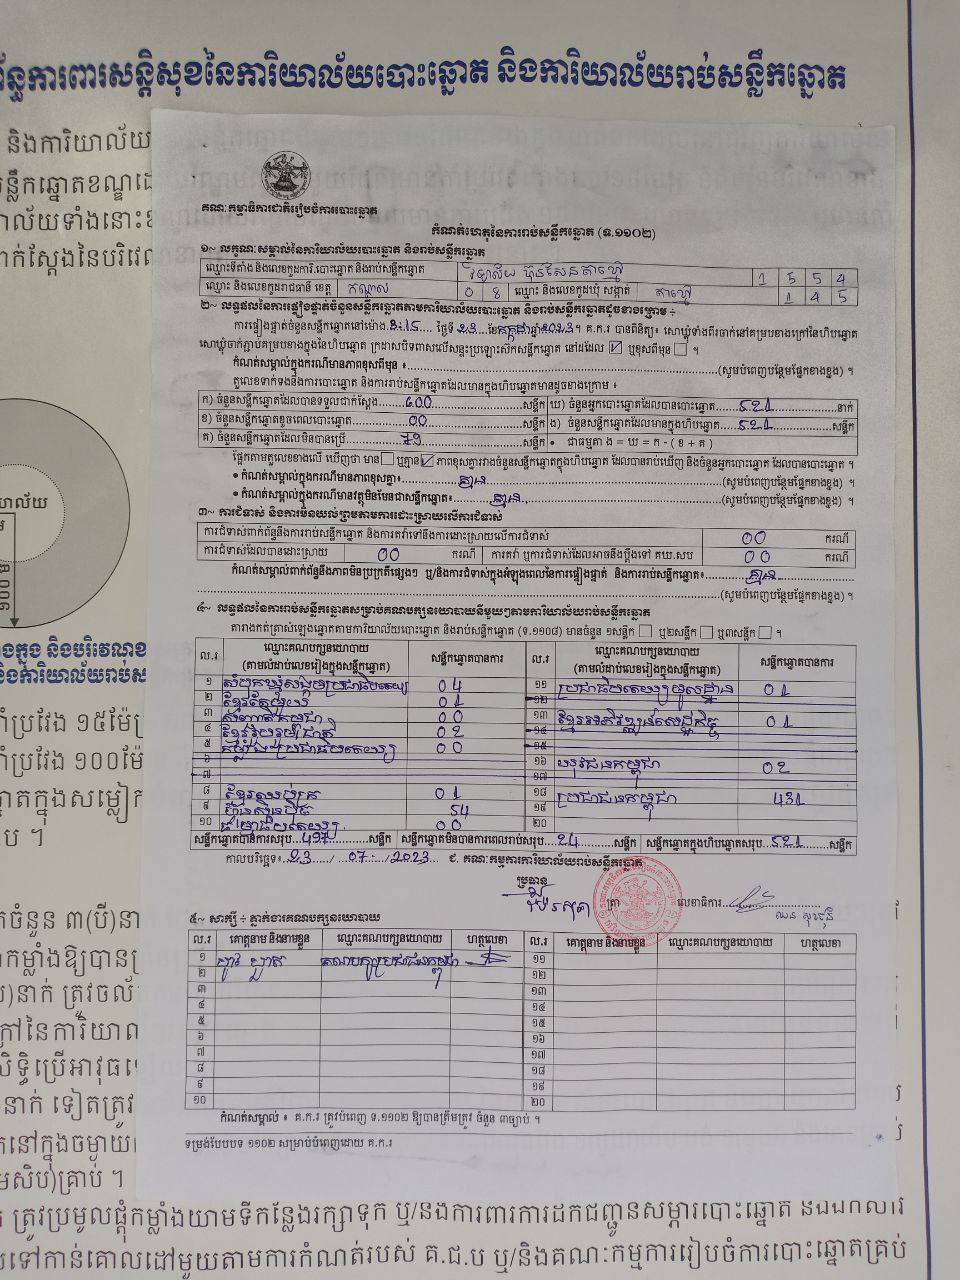 ន្ធការពារសន្តិសុខនៃការិយាល័យបោះឆ្នោត និងការិយាល័យរាប់សន្លឹកឆ្នោត
និងការិយាល័យ
គណៈកម្មាធិការជាតិរៀបចំការបោះឆ្នោត
កំណត់ហេតុនៃការរាប់សន្លឹកឆ្នោត (ទ.១១០២)
១~ លក្ខណៈសម្គាល់នៃការិយាល័យបោះឆ្នោត និងរាប់សន្លឹកឆ្នោត
ឈ្មោះទីតាំង និងលេខកូដការិ.បោះឆ្នោត និងរាប់សន្លឹកឆ្នោត វិទ្យាល័យ ប៊ុនរ៉ានី ហ៊ុនសែនតាខ្មៅ 1 5 5 4
ឈ្មោះ និងលេខកូដរាជធានី ខេត្ត កណ្តាល 0 8 ឈ្មោះ និងលេខកូដឃុំ សង្កាត់ តាខ្មៅ 1 4 5
២~ លទ្ធផលនៃការផ្ទៀងផ្ទាត់ចំនួនសន្លឹកឆ្នោតតាមការិយាល័យបោះឆ្នោត និងរាប់សន្លឹកឆ្នោតដូចខាងក្រោម ៖
ការផ្ទៀងផ្ទាត់ចំនួនសន្លឹកឆ្នោតនៅម៉ោង 3:15 ថ្ងៃទី 23 ខែ កក្កដា ឆ្នាំ 2023 ។ គ.ក.រ បានពិនិត្យ ៖ សោឃ្លុំទាំងពីរចាក់នៅគម្របខាងក្រៅនៃហិបឆ្នោត
សោឃ្លុំចាក់ភ្ជាប់គម្របខាងក្នុងនៃហិបឆ្នោត ក្រដាសបិទពាសលើសន្ទះប្រឡោះស៊កសន្លឹកឆ្នោត នៅដដែល ☑ ឬខុសពីមុន ☐ ។
កំណត់សម្គាល់ក្នុងករណីមានភាពខុសពីមុន ៖ (សូមបំពេញបន្ថែមផ្នែកខាងខ្នង) ។
តួលេខទាក់ទងនឹងការបោះឆ្នោត និងការរាប់សន្លឹកឆ្នោតដែលមានក្នុងហិបឆ្នោតមានដូចខាងក្រោម ៖
ក) ចំនួនសន្លឹកឆ្នោតដែលបានទទួលជាក់ស្តែង 600 សន្លឹក ឃ) ចំនួនអ្នកបោះឆ្នោតដែលបានបោះឆ្នោត 521 នាក់
ខ) ចំនួនសន្លឹកឆ្នោតខូចពេលបោះឆ្នោត 00 សន្លឹក ង) ចំនួនសន្លឹកឆ្នោតដែលមានក្នុងហិបឆ្នោត 521 សន្លឹក
គ) ចំនួនសន្លឹកឆ្នោតដែលមិនបានប្រើ 79 សន្លឹក • ជាធម្មតា ង = ឃ = ក - ( ខ + គ )
ផ្អែកតាមតួលេខខាងលើ ឃើញថា មាន ☐ ឬគ្មាន ☑ ភាពខុសគ្នារវាងចំនួនសន្លឹកឆ្នោតក្នុងហិបឆ្នោត ដែលបានរាប់ឃើញ និងចំនួនអ្នកបោះឆ្នោត ដែលបានបោះឆ្នោត ។
• កំណត់សម្គាល់ក្នុងករណីមានភាពខុសគ្នា៖ គ្មាន (សូមបំពេញបន្ថែមផ្នែកខាងខ្នង) ។
• កំណត់សម្គាល់ក្នុងករណីមានវត្ថុមិនមែនជាសន្លឹកឆ្នោត៖ គ្មាន (សូមបំពេញបន្ថែមផ្នែកខាងខ្នង) ។
៣~ ការជំទាស់ និងការមិនយល់ព្រមតាមការដោះស្រាយលើការជំទាស់
ការជំទាស់ពាក់ព័ន្ធនឹងការរាប់សន្លឹកឆ្នោត និងការតវ៉ាទៅនឹងការដោះស្រាយលើការជំទាស់ 00 ករណី
ការជំទាស់ដែលបានដោះស្រាយ 00 ករណី ការតវ៉ា ឬការជំទាស់ដែលអាចនឹងប្តឹងទៅ គឃ.សប 00 ករណី
កំណត់សម្គាល់ពាក់ព័ន្ធនឹងភាពមិនប្រក្រតីផ្សេងៗ ឬ/និងការជំទាស់ក្នុងអំឡុងពេលនៃការផ្ទៀងផ្ទាត់ និងការរាប់សន្លឹកឆ្នោត៖ គ្មាន
(សូមបំពេញបន្ថែមផ្នែកខាងខ្នង) ។
៤~ លទ្ធផលនៃការរាប់សន្លឹកឆ្នោតសម្រាប់គណបក្សនយោបាយនីមួយៗតាមការិយាល័យរាប់សន្លឹកឆ្នោត
តារាងកត់ត្រាសំឡេងឆ្នោតតាមការិយាល័យបោះឆ្នោត និងរាប់សន្លឹកឆ្នោត (ទ.១១០៨) មានចំនួន ១សន្លឹក ☐ ឬ២សន្លឹក ☐ ឬ៣សន្លឹក ☐ ។
ល.រ ឈ្មោះគណបក្សនយោបាយ (តាមលំដាប់លេខរៀងក្នុងសន្លឹកឆ្នោត) សន្លឹកឆ្នោតបានការ ល.រ ឈ្មោះគណបក្សនយោបាយ (តាមលំដាប់លេខរៀងក្នុងសន្លឹកឆ្នោត) សន្លឹកឆ្នោតបានការ
១ សំបុកឃ្មុំសង្គមប្រជាធិបតេយ្យ 04 ១១ ប្រជាធិបតេយ្យមូលដ្ឋាន 01
២ ខ្មែរតែមួយ 01 ១២
៣ សញ្ជាតិកម្ពុជា 00 ១៣ ខ្មែរអភិវឌ្ឍន៍សេដ្ឋកិច្ច 01
៤ ខ្មែររួបរួមជាតិ 02 ១៤
៥ កម្លាំងប្រជាធិបតេយ្យ 00 ១៥
៦ ១៦ យុវជនកម្ពុជា 02
៧ ១៧
៨ ខ្មែរឈប់ក្រ 01 ១៨ ប្រជាជនកម្ពុជា 431
៩ ហ៊្វុនស៊ិនប៉ិច 54 ១៩
១០ ធម្មាធិបតេយ្យ 00 ២០
សន្លឹកឆ្នោតបានការសរុប 497 សន្លឹក សន្លឹកឆ្នោតមិនបានការពេលរាប់សរុប 24 សន្លឹក សន្លឹកឆ្នោតក្នុងហិបឆ្នោតសរុប 521 សន្លឹក
កាលបរិច្ឆេទ៖ 23 / 07 / 2023 ជ. គណៈកម្មការការិយាល័យរាប់សន្លឹកឆ្នោត
ប្រធាន
ត្រា លេខាធិការ
៥~ សាក្សី ៖ ភ្នាក់ងារគណបក្សនយោបាយ
ល.រ គោត្តនាម និងនាមខ្លួន ឈ្មោះគណបក្សនយោបាយ ហត្ថលេខា ល.រ គោត្តនាម និងនាមខ្លួន ឈ្មោះគណបក្សនយោបាយ ហត្ថលេខា
១ គណបក្សប្រជាជនកម្ពុជា ១១
២ ១២
៣ ១៣
៤ ១៤
៥ ១៥
៦ ១៦
៧ ១៧
៨ ១៨
៩ ១៩
១០ ២០
កំណត់សម្គាល់ ៖ គ.ក.រ ត្រូវបំពេញ ទ.១១០២ ឱ្យបានត្រឹមត្រូវ ចំនួន ៣ច្បាប់ ។
ទម្រង់បែបបទ ១១០២ សម្រាប់បំពេញដោយ គ.ក.រ
ត្រូវប្រមូលផ្តុំកម្លាំងយាមទីកន្លែងរក្សាទុក ឬ/និងការពារការដឹកជញ្ជូនសម្ភារបោះឆ្នោត
ទៅកាន់គោលដៅមួយតាមការកំណត់របស់ គ.ជ.ប ឬ/និងគណៈកម្មការរៀបចំការបោះឆ្នោតគ្រប់